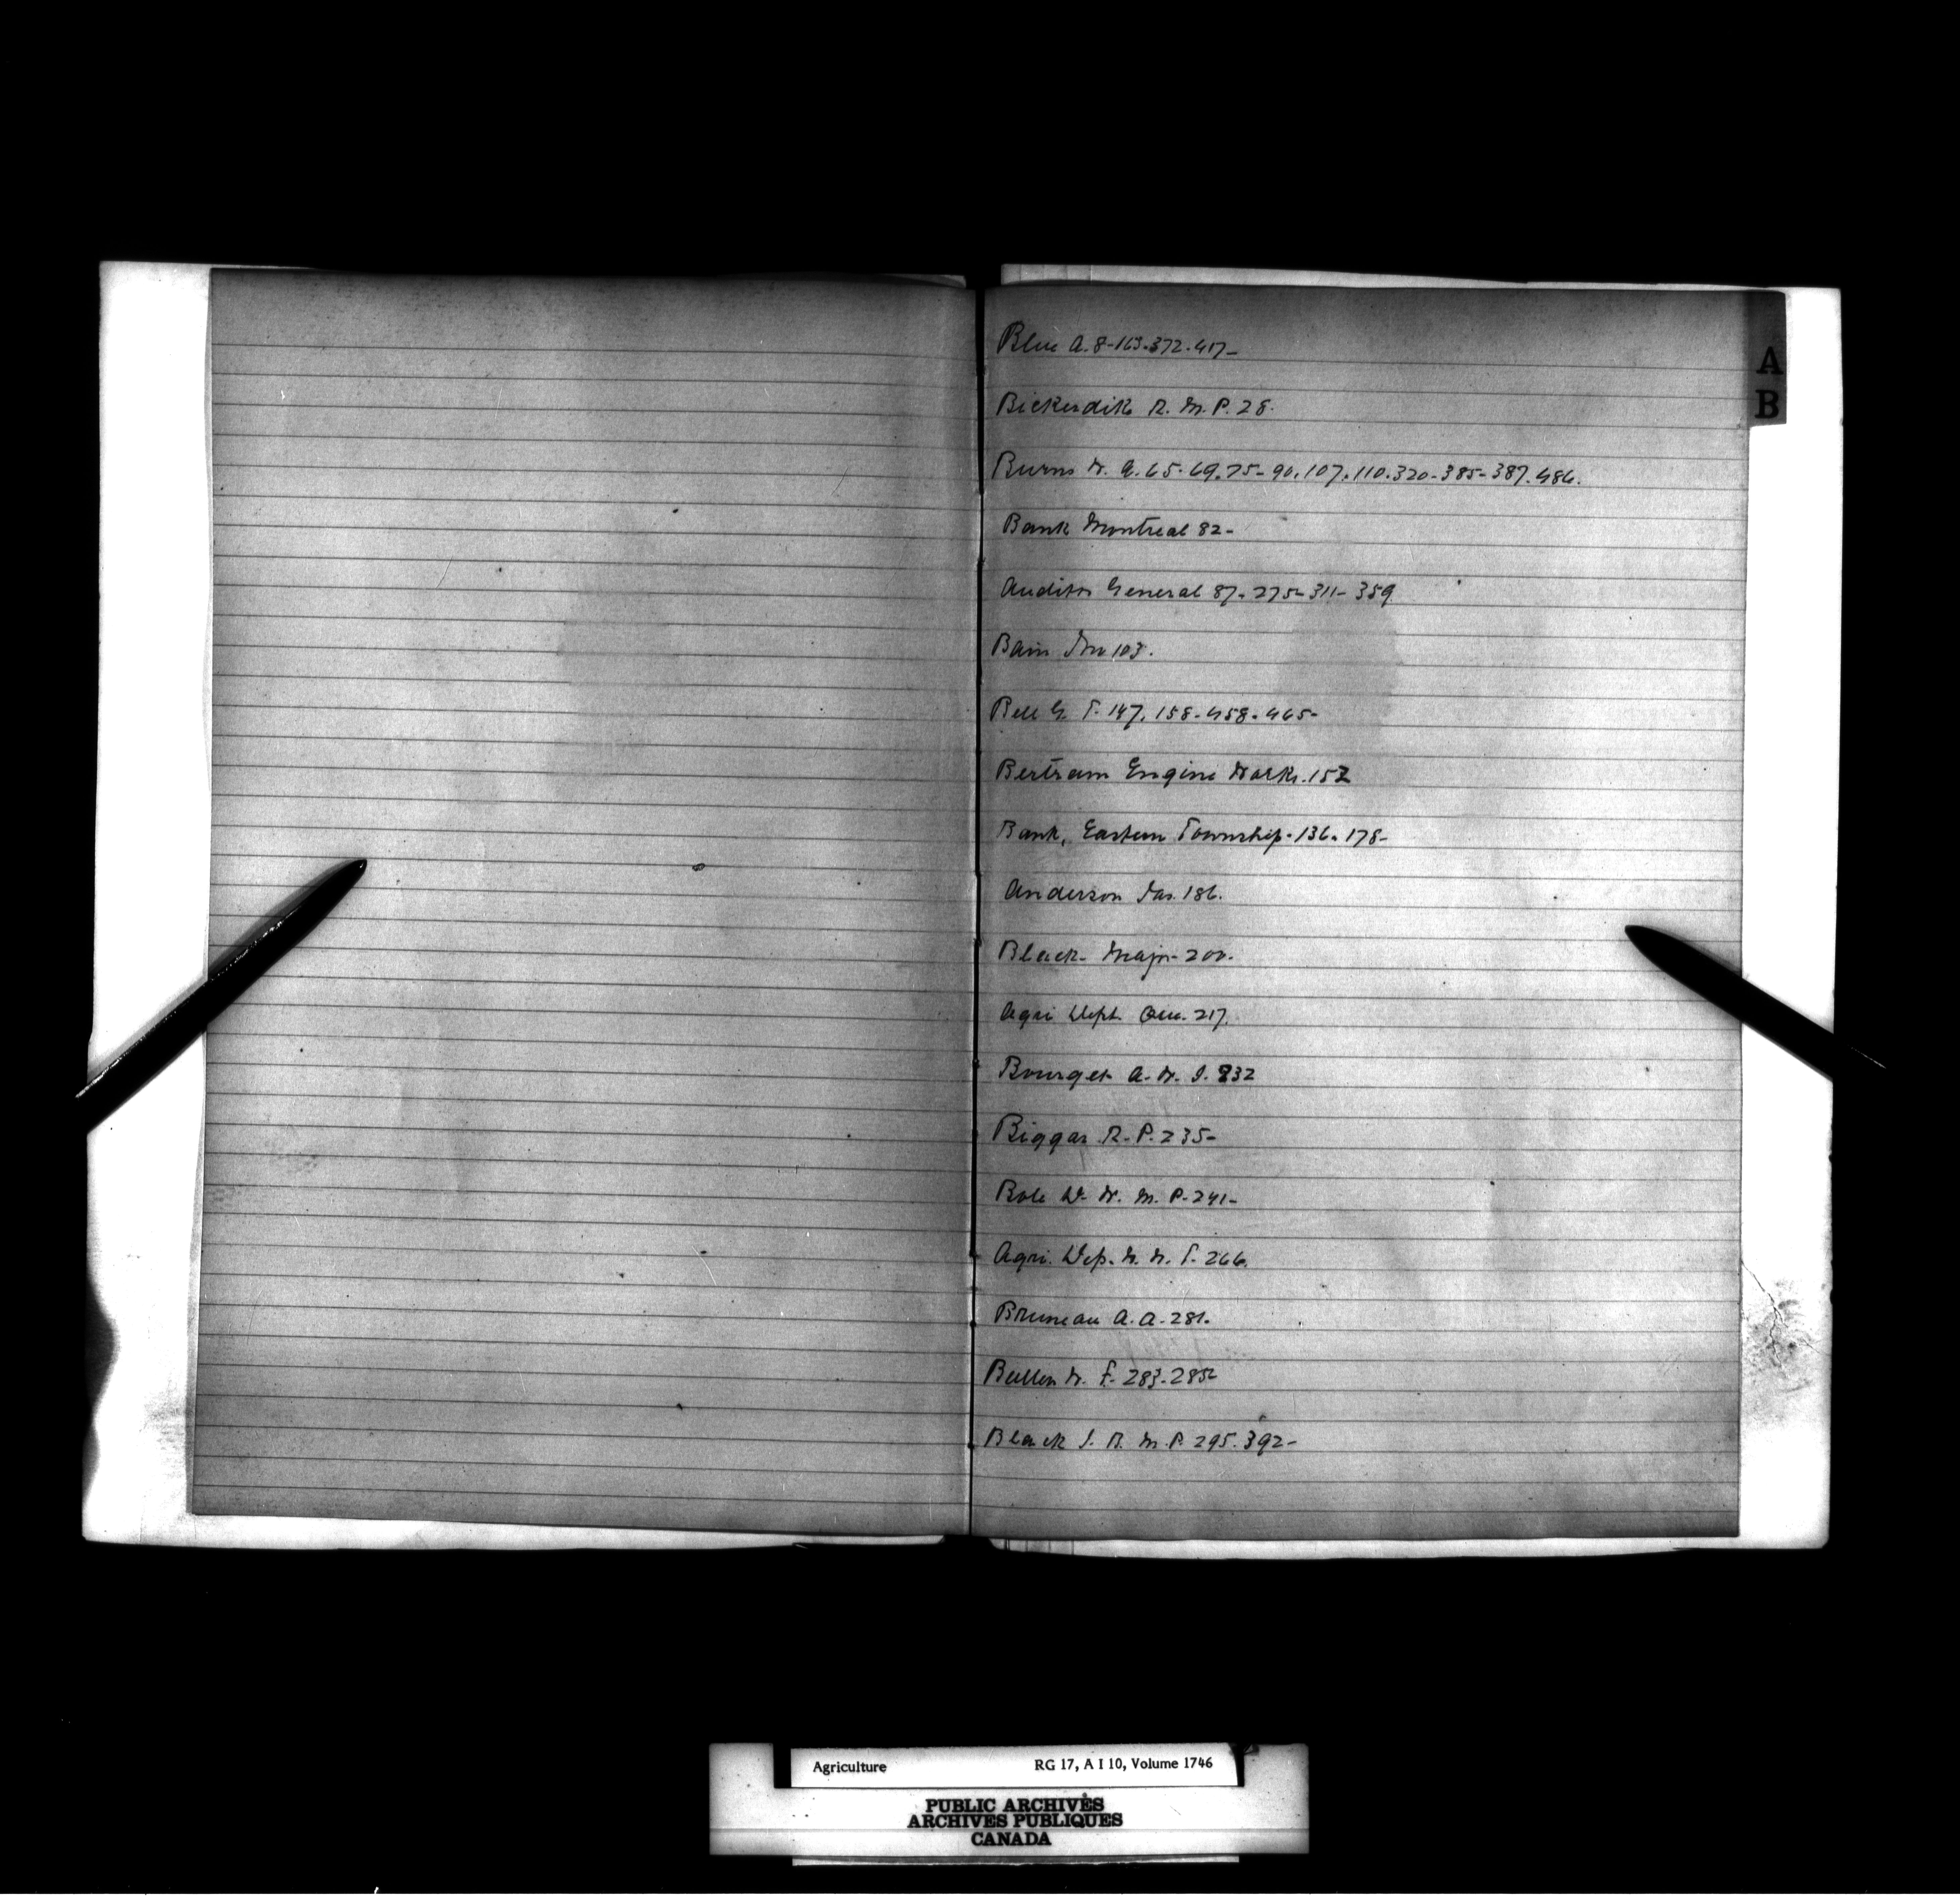 A
B
Blue A. 8-163.372.417-
Bickerdik R. M. P. 28.
Burns W. A. 65.69.75-90.107.110.320-385-387.486.
Bank Montreal 82-
Auditor General 87.275-311-359
Bain Mr 103.
Bell G. T. 147.158.458.465-
Bertram Engine Works. 152
Bank, Eastern Township. 136.178-
Anderson Jas. 186.
Black- Major- 200.
Agri Dept. Que. 217.
Bourget A. W. J. 232
Biggar R. P. 235-
Bole D. W. M. P. 241-
Agri. Dep. N. W. T. 266.
Bruneau A. A. 281.
Bullen W. F. 283-285-
Black J. B. M. P. 295.392-
Agriculture RG 17, A I 10, Volume 1746
PUBLIC ARCHIVES
ARCHIVES PUBLIQUES
CANADA